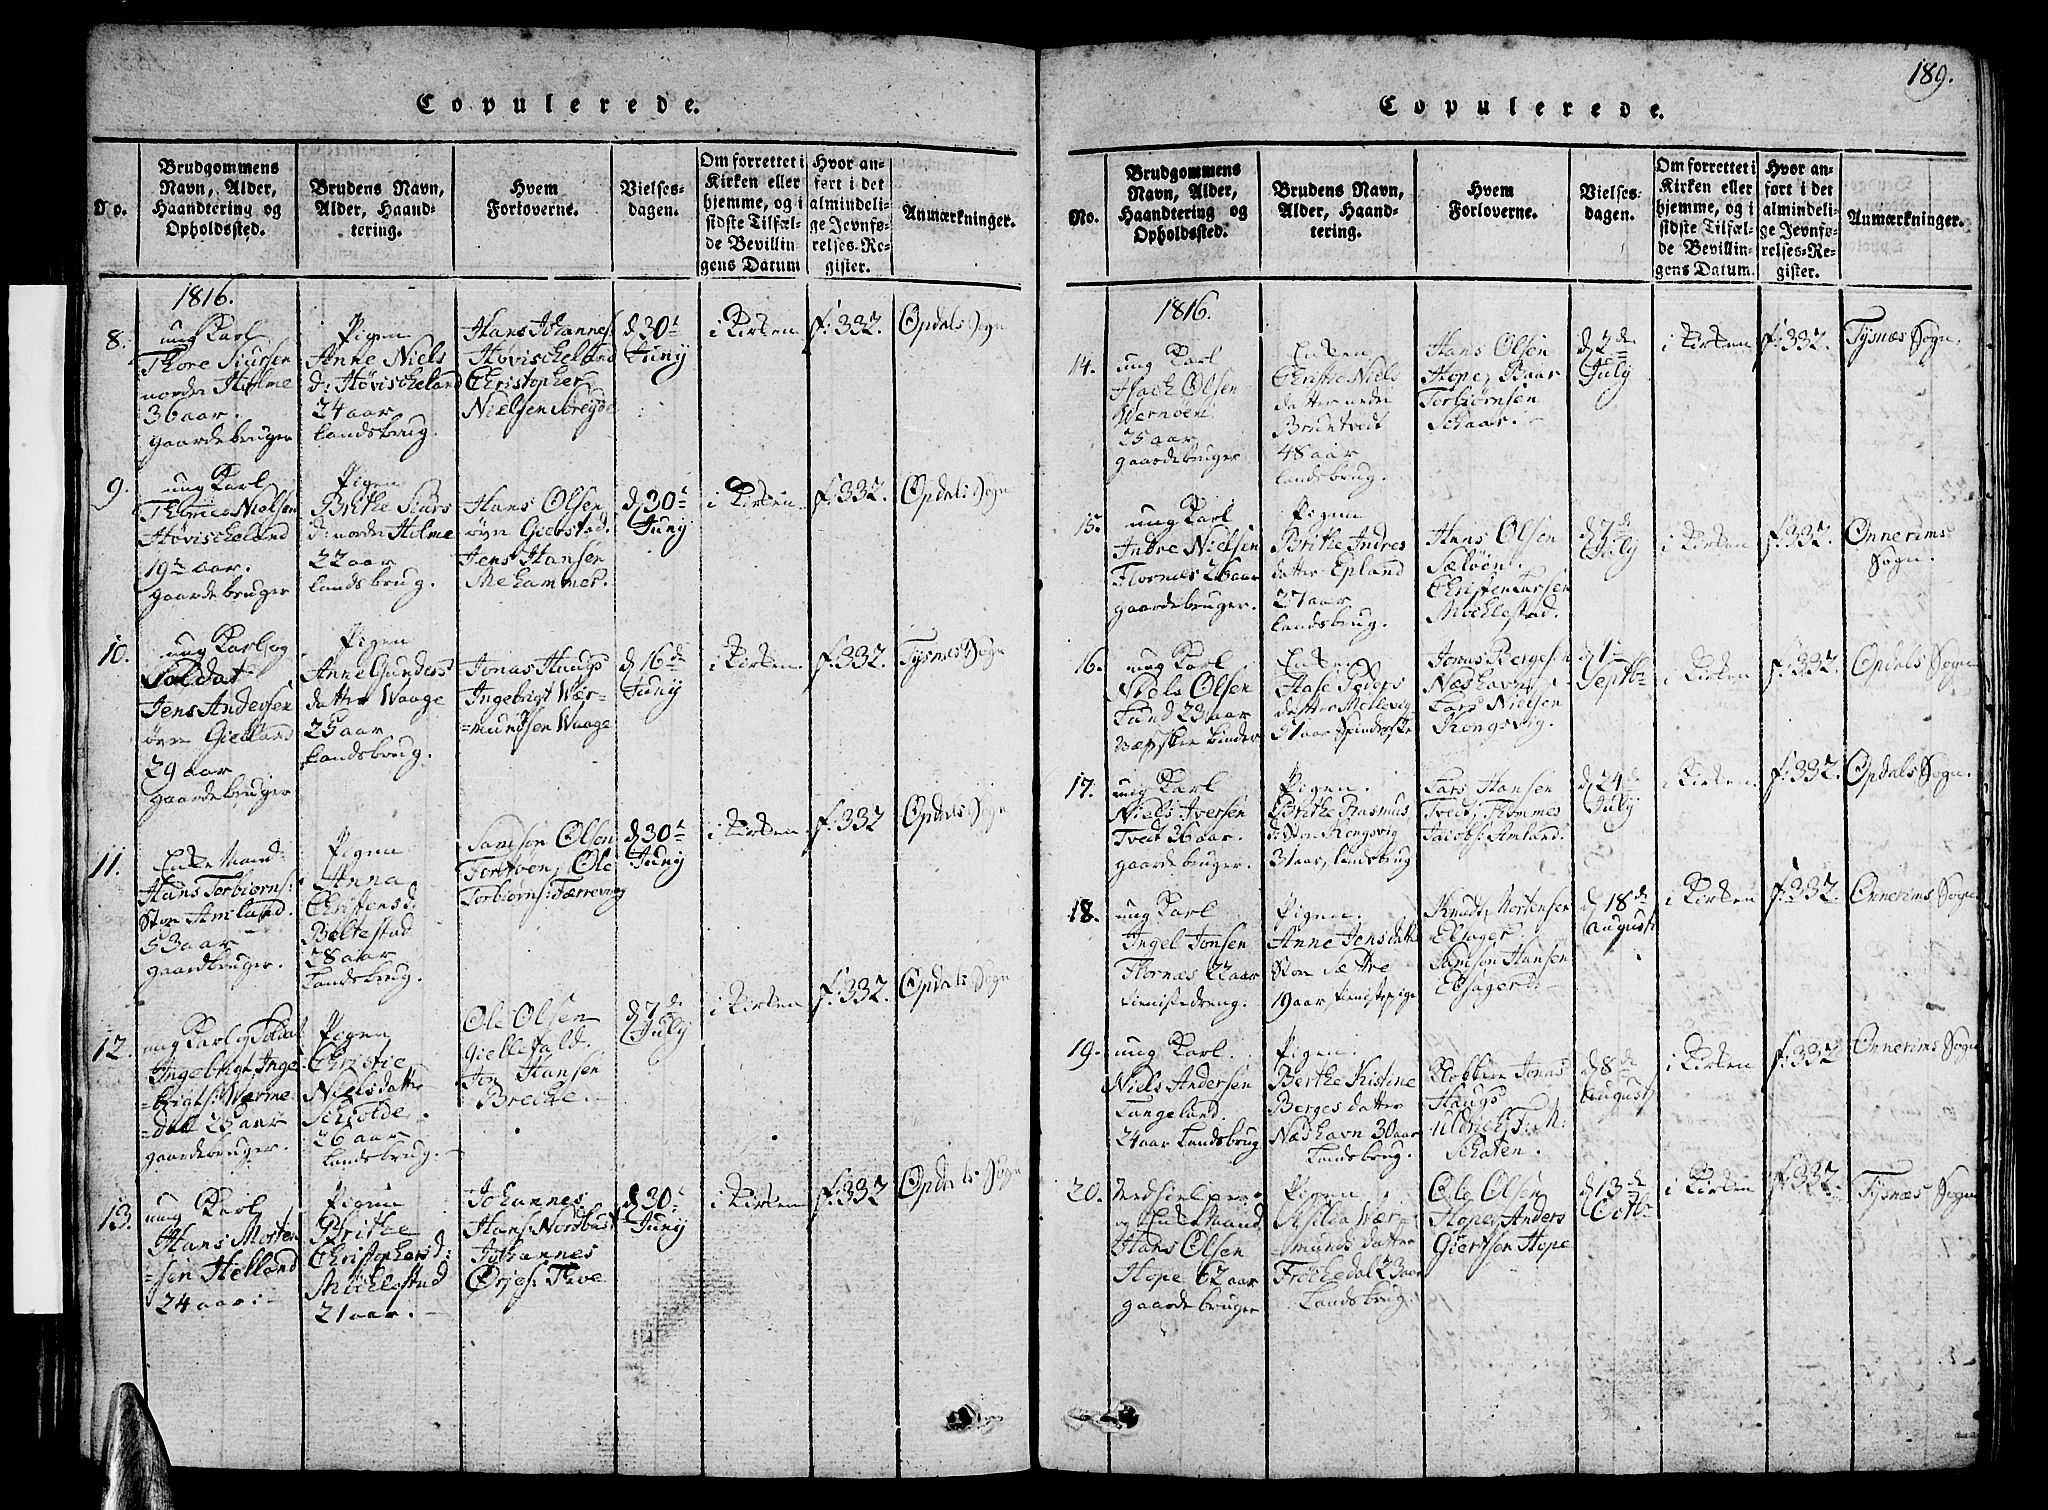 189.
Copulerede.
No.
Brudgommens Navn, Alder, Haandtering og Opholdssted.
Brudens Navn, Alder, Haandtering.
Hvem Forloverne.
Vielsesdagen.
Om forrettet i Kirken eller hjemme, og i sidste Tilfælde Bevillingens Datum
Hvor anført i det almindelige Jevnførelses-Register.
Anmærkninger.
1816.
8.
ung Karl
Thore Siursen
nordre Holme
36 aar.
gaardebruger
Pigen
Anne Niels
d: Høvischeland
24 aar
Landsbrug.
Hans Johannes:
Høvischeland
Christopher
Nielsen Søreyde
d 30t
Juny
i Kirken
f: 332.
Opdals Sogn
9.
ung Karl
Nielsen
Høvischeland
19 aar.
gaardebruger
Pigen
Brithe Siurs
d: nordre Holme
22 aar
Landsbrug.
Hans Olsen
øvre Giebstad.
Jens Hansen
Mehammer.
d 30t
Juny
i Kirken
f: 332.
Opdals Sogn
10.
ung Karl og
Soldat
Jens Andersen
øvre Gielland
29 aar
gaardebruger
Pigen
Anne Gunders
datter Waage
25 aar
Landsbrug.
Jonas Haugs
Ingebrigt Wær-
=mundsen Waage
d 16de
Juny
i Kirken
f: 332.
Tysnæs Sogn
11.
Enke Mand:
Hans Torbiørns:
Stor Amland.
53 aar
gaardbruger.
Pigen
Anna
Christensd:
Beltestad
28 aar
Landsbrug.
Samson Olsen
Ole
Torbiørns: Færrevaag
d 30t
Juny
i Kirken
f: 332
Opdals Sogn
12.
ung Karl og Soldat
Ingebrigt Inge
=brigts: Wærme
=dal 25 aar
gaardebruger.
Pigen
Christie
Nielsdatter
Schiolde.
26 aar
Landsbrug.
Ole Olsen
Giellefald.
Jon Hansen
Breche.
d 7de
July
i Kirken
f: 332.
Opdals Sogn
13.
ung Karl
Hans Morten
=sen Helland
24 aar:
Pigen
Brithe
Christophersd:
Møchlestad
21 aar.
Johannes
Hans: Nordbust
Johannes
Ørjes: Tive
d 30t
Juny
i Kirken
f: 332
Opdals Sogn
Copulerede.
No.
Brudgommens Navn, Alder, Haandtering og Opholdssted.
Brudens Navn, Alder, Haandtering.
Hvem Forloverne.
Vielsesdagen.
Om forrettet i Kirken eller hjemme, og i sidste Tilfælde Bevillingens Datum.
Hvor anført i det almindelige Jevnførelses-Register.
Anmærkninger.
1816.
14.
ung Karl
Olsen
Wernøen
25 aar
gaardebruger
Enken
Christie Niels
datter nedre
Bruntvedt
48 aar
Landsbrug.
Hans Olsen
Hope, Baar
Torbiørnsen
Schaar.
d 2de
July
i Kirken
f: 332.
Tysnæs Sogn.
15.
ung Karl
Andre Nielsen
Flornæs 26 aar
gaardebruger.
Pigen
Brithe Andres
datter Epland
27 aar
Landsbrug.
Hans Olsen
Sæløen.
Christen Larsen
Mochlestad.
d 7de
July
i Kirken
f: 332.
Onnerims
Sogn.
16.
ung Karl
Niels Olsen
Lund 23 aar
Enken
Aase Peders
datter Mellevig
Jonas Bergesen
Næshavn
Lars Nielsen
Kongsvig.
d 1te
Septbr
i Kirken
f: 332.
Opdals Sogn
17.
ung Karl
Niels Iversen
Tvedt 26 aar.
gaardebruger.
Pigen.
Brithe Rasmus
datter Kongsvig
31 aar, Landsbrug
Lars Hansen
Tvedt, Thommes
Jacobs: Amland.
d 24de
July
i Kirken
f: 332.
Opdals Sogn.
18.
ung Karl
Ingel Jonsen
Flornæs 22 aar
tienistedreng.
Pigen.
Anne Jensdatter
Stor Sættre
19 aar, tienistepige
Knudt Mortensen
Elsager.
Samson Hansen
Elsager
d 18de
Augusti
i Kirken
f: 332.
Onnerims Sogn
19.
ung Karl.
Niels Andersen
Langeland.
24 aar Landsbrug
Pigen.
Berthe Kistine
Berges datter
Næshavn 30 aar
Landsbrug.
Klokkere Jonas
Haugs
Uldrich F: M:
Schaten.
d 8de
Augusti
i Kirken
f: 332
Onnerims Sogn
20.
og Enke Mand
Hans Olsen
Hope 62 aar
gaardebruger
Pigen
Asilia Wær
=munds datter
Frøchedal 23 aar
Landsbrug.
Ole Olsen
Hope, Anders
Giertsen Hope
d 13de
Octbr
i Kirken
f: 332.
Tysnæs Sogn